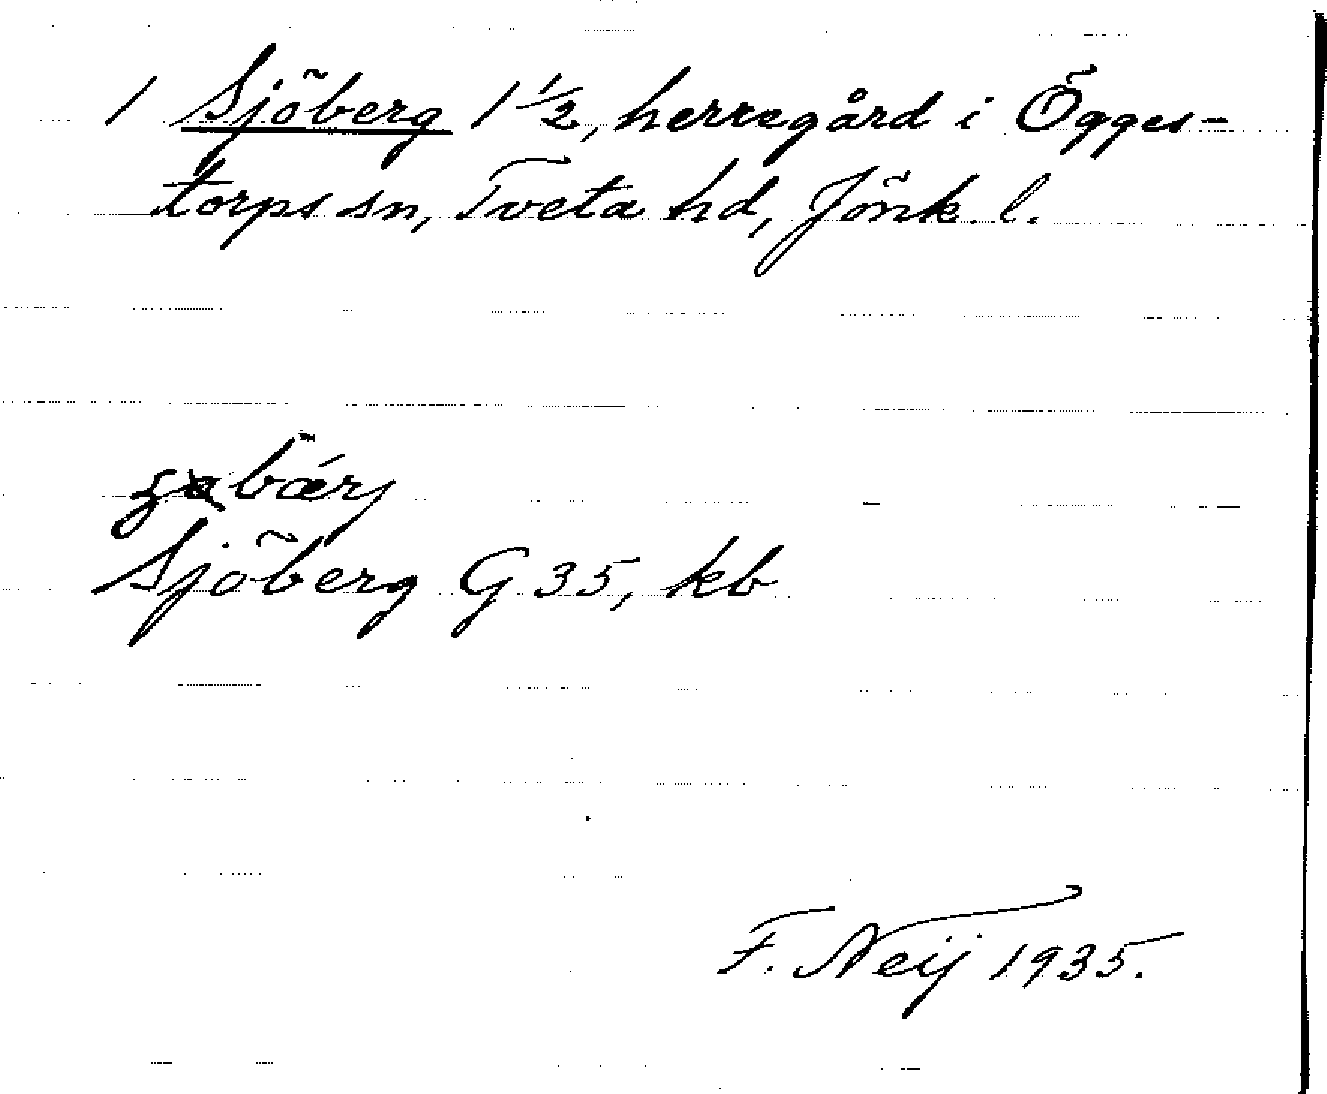 1 Sjöberg 1 ½, herregård i Ögges-
torps sn, Tveta hd, Jönk. l.
Sjöberg G 35, kb
F. Neij 1935.